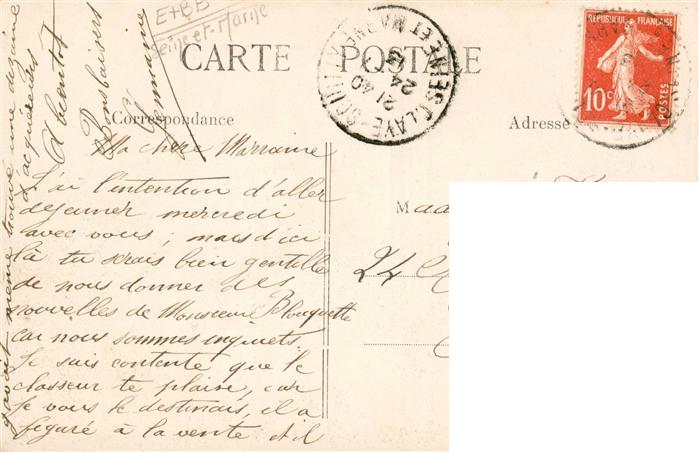 E+BB
Seine-et-Marne
CARTE POSTALE
CLAYE-SOUILLY
SEINE ET MARNE
21 40
24
REPUBLIQUE FRANÇAISE
10c
POSTES
Correspondance
Adresse
Ma chère Marraine
J'ai l'intention d'aller
dejeuner mercredi
avec vous ; mais d'ici
là tu serais bien gentille
de nous donner des
nouvelles de Monsieur Blouquette
car nous sommes inquiets.
Je suis contente que le
classeur te plaise, car
je vous le destinais, il a
figuré à la vente et il
avait même trouvé une dizaine
d'acquéreurs
A bientôt
Bons baisers
Germaine
M
24